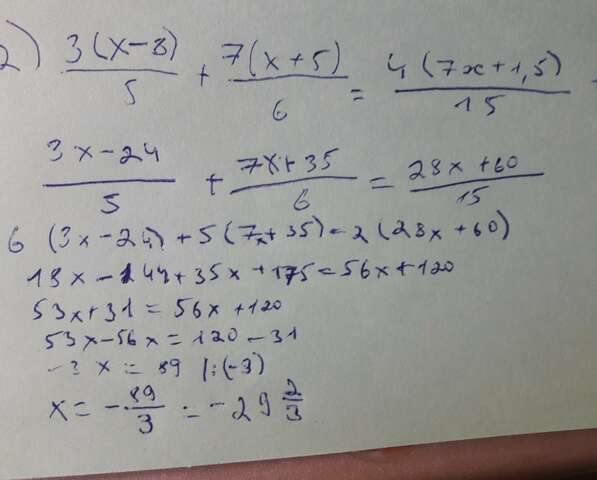 2) 3(x-8)/5 + 7(x+5)/6 = 4(7x+1,5)/15
3x-24/5 + 7x+35/6 = 28x+60/15
6 (3x-24) + 5(7x+35) = 2(28x+60)
18x-144+35x+175=56x+120
53x+31 = 56x+120
53x-56x = 120-31
-3x = 89 |:(-3)
x = -89/3 = -29 2/3